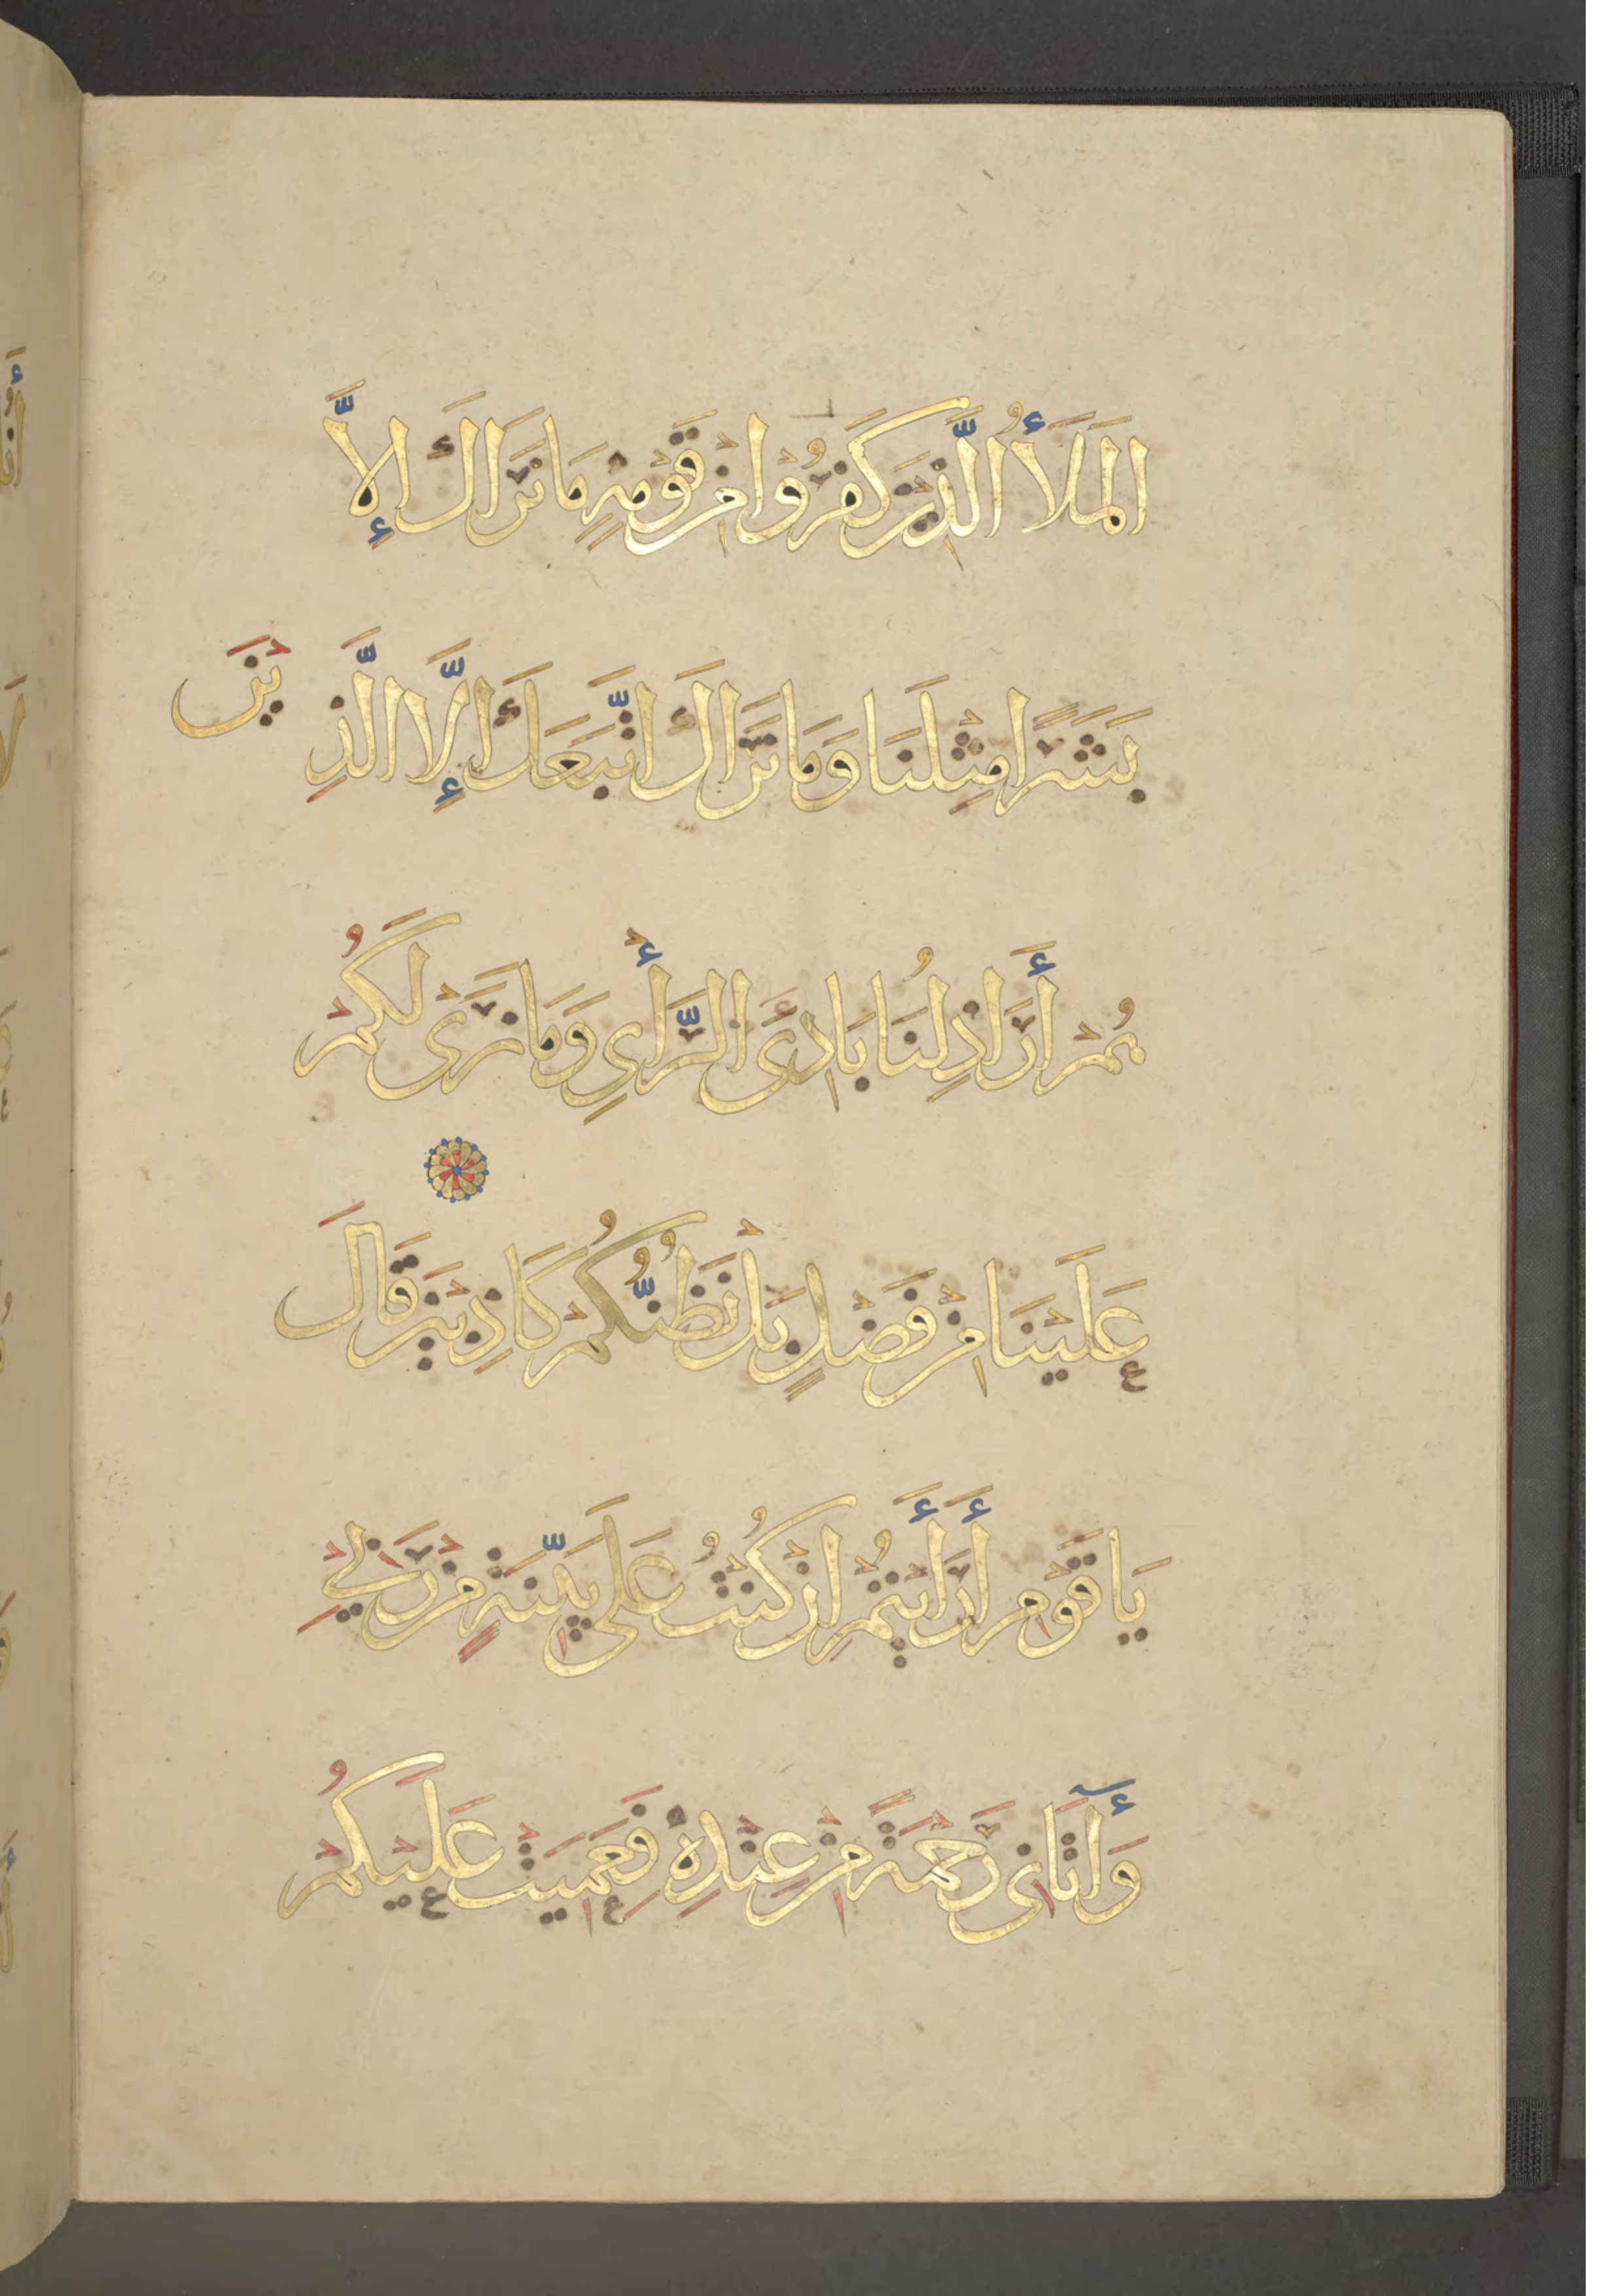 الْمَلَأُ الَّذِينَ كَفَرُوا مِنْ قَوْمِهِ مَا نَرَاكَ إِلَّا
بَشَرًا مِثْلَنَا وَمَا نَرَاكَ اتَّبَعَكَ إِلَّا الَّذِينَ
هُمْ أَرَاذِلُنَا بَادِئَ الرَّأْيِ وَمَا نَرَىٰ لَكُمْ
عَلَيْنَا مِنْ فَضْلٍ بَلْ نَظُنُّكُمْ كَاذِبِينَ قَالَ
يَا قَوْمِ أَرَأَيْتُمْ إِنْ كُنْتُ عَلَى بَيِّنَةٍ مِنْ رَبِّي
وَآتَانِي رَحْمَةً مِنْ عِنْدِهِ فَعَمِيَتْ عَلَيْكُمْ